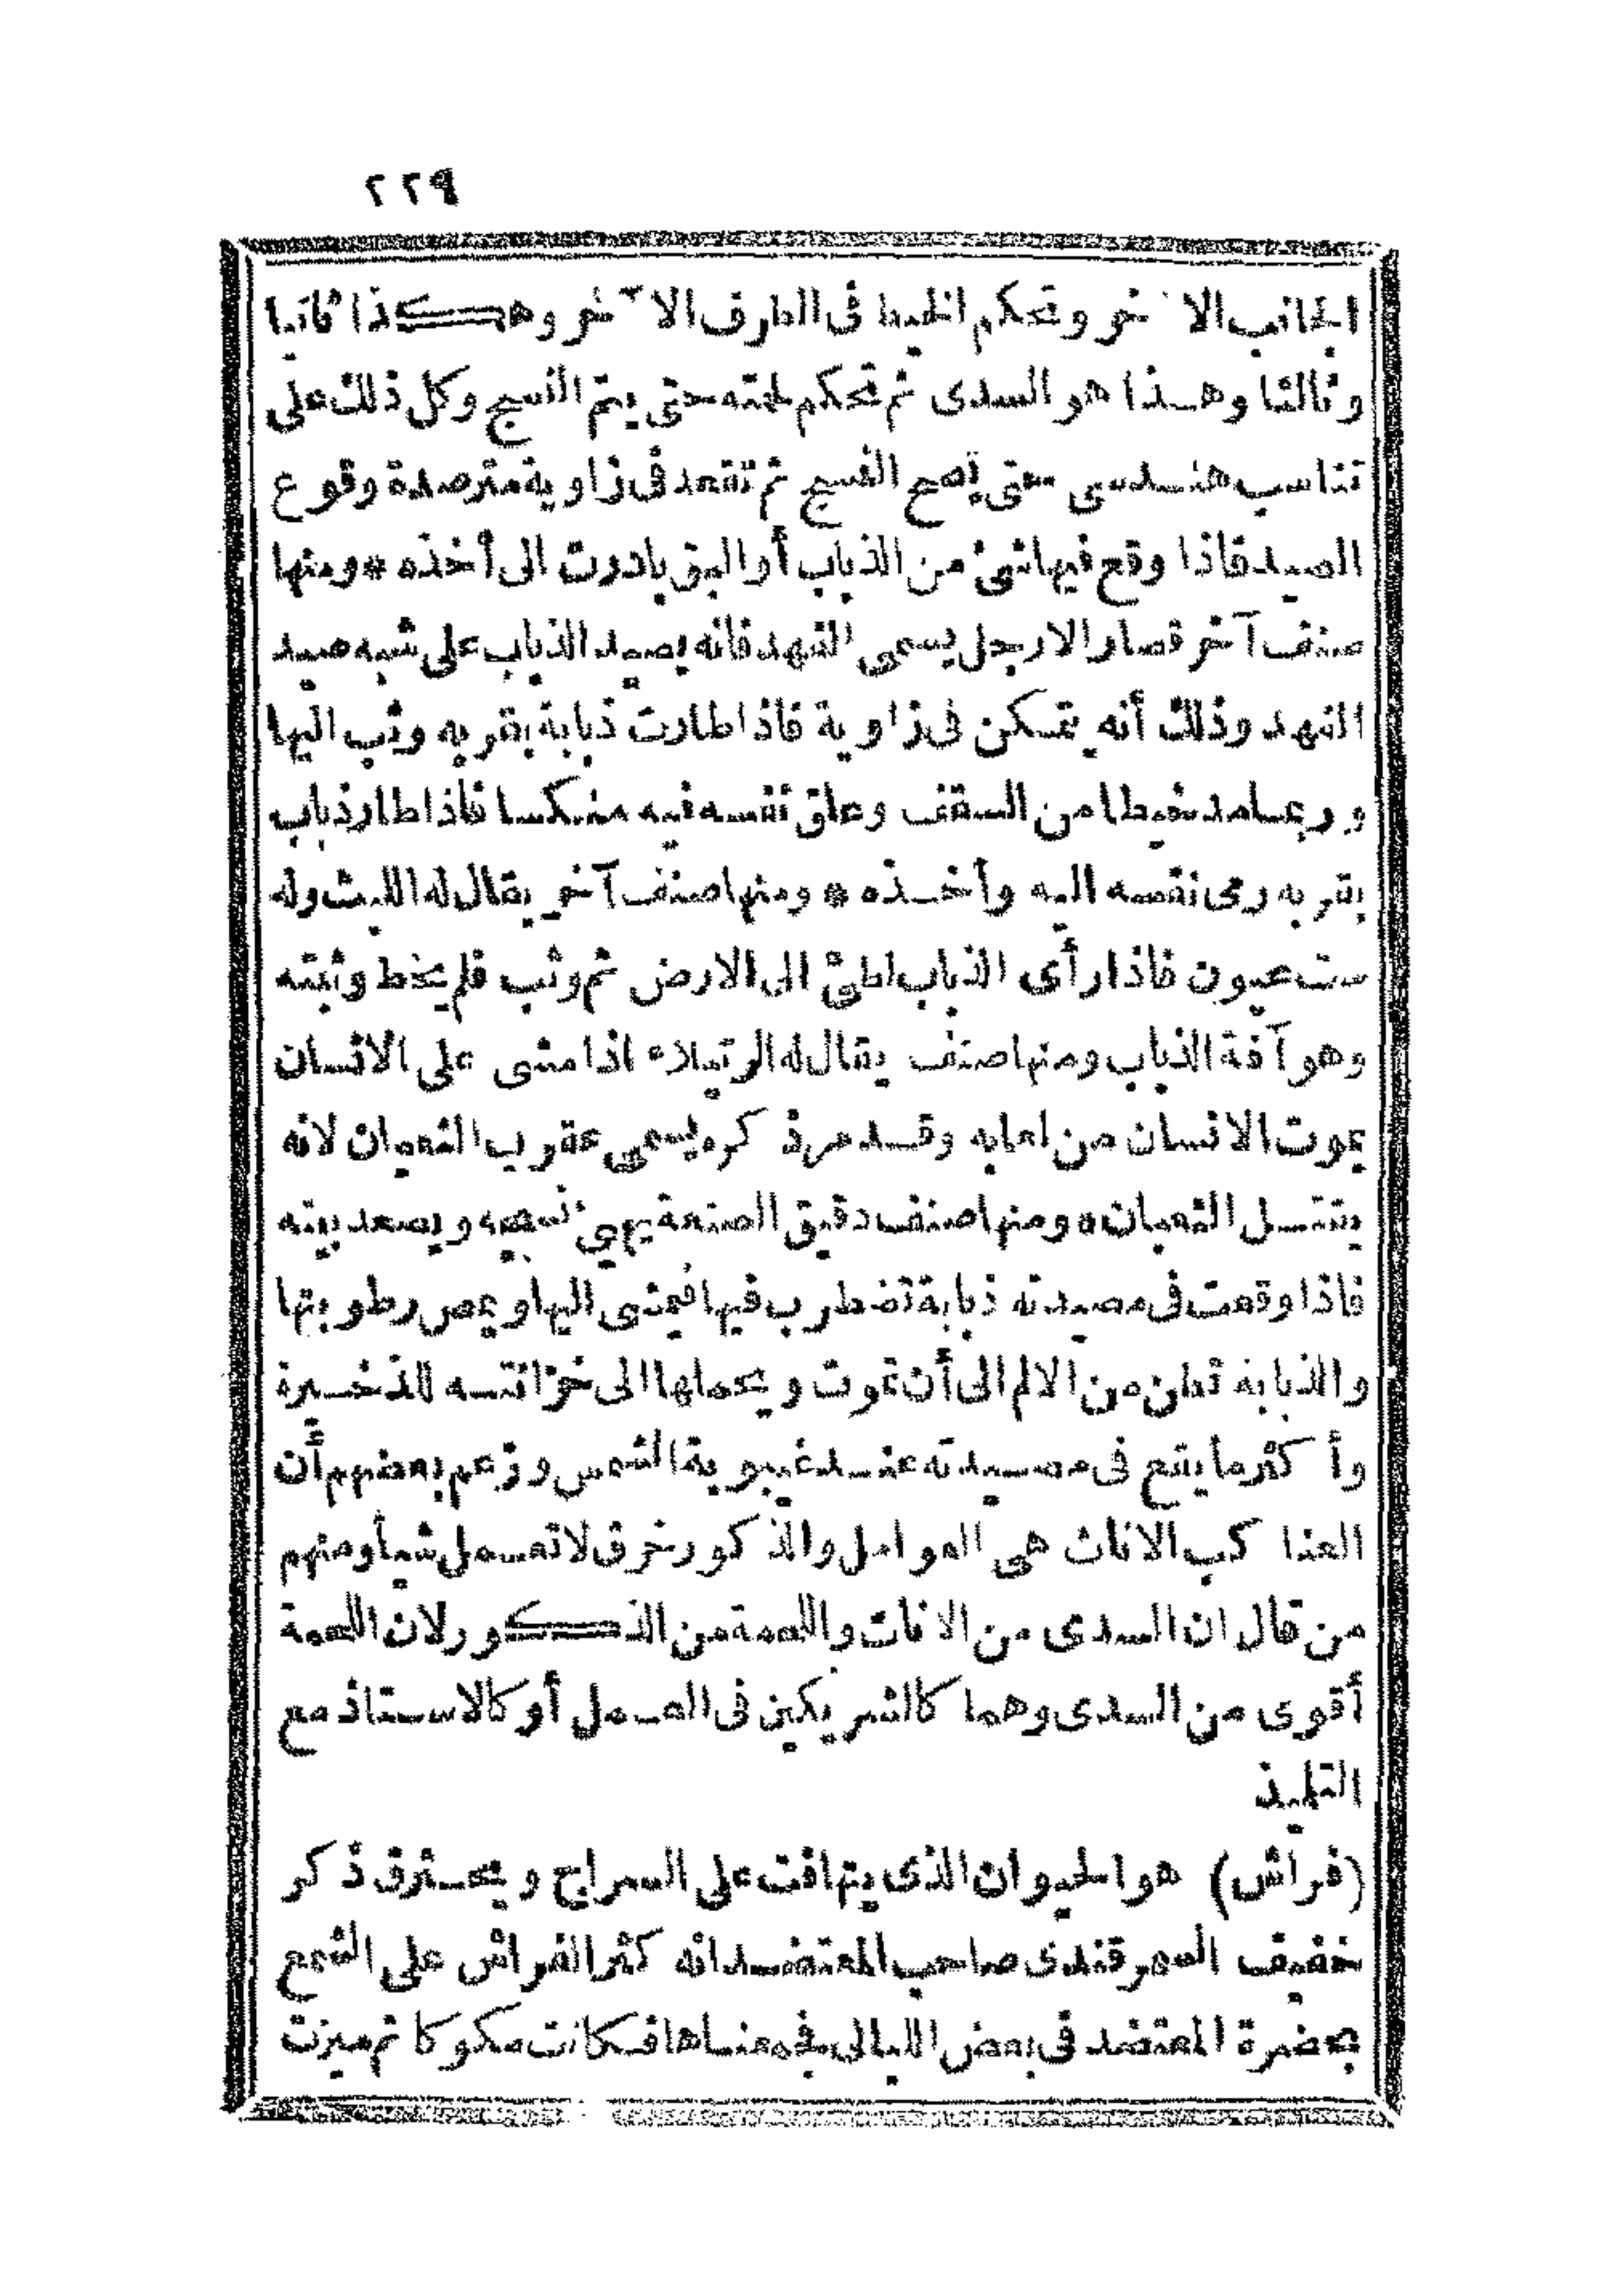 ٢٢٩
الجانب الآخر وتحكم الخيط فى الطرف الآخر وهكذا ثانيا
وثالثا وهذا هو السدى ثم تحكم لحمته حتى يتم النسج وكل ذلك على
تناسب هندسى حتى يصح النسج ثم تقعد فى زاوية مترصدة وقوع
الصيد فاذا وقع فيها شئ من الذباب أو البق بادرت الى أخذه * ومنها
صنف آخر قصار الارجل يسمى الفهد فانه يصيد الذباب على شبه صيد
الفهد وذلك أنه يتمكن فى زاوية فاذا طارت ذبابة بقربه وثب اليها
وربما مد خيطا من السقف وعلق نفسه فيه منكسا فاذا طار ذباب
بقربه رمى نفسه اليه وأخذه * ومنها صنف آخر يقال له الليث وله
ست عيون فاذا رأى الذباب لطئ الى الارض ثم وثب فلم يخط وثبته
وهو آفة الذباب ومنها صنف يقال له الرتيلاء اذا مشى على الانسان
يموت الانسان من لعابه وقد مر ذكره يسمى عقرب الثعبان لانه
يقتل الثعبان * ومنها صنف دقيق الصنعة يهيئ نسجه ويصعد بيته
فاذا وقعت فى مصيدته ذبابة تضطرب فيها فيمشى اليها ويمص رطوبتها
والذبابة تطن من الالم الى أن تموت ويحملها الى خزانته للذخيرة
وأكثر ما يقع فى مصيدته عند غيبوبة الشمس وزعم بعضهم أن
العناكب الاناث هى العوامل والذكور خرق لا تعمل شيأ ومنهم
من قال ان السدى من الاناث واللحمة من الذكور لان اللحمة
أقوى من السدى وهما كالشريكين فى العمل أو كالاستاذ مع
التلميذ
(فراش) هو الحيوان الذى يتهافت على السراج ويحترق ذكر
خفيف السمرقندى صاحب المعتضد انه كثر الفراش على الشمع
بحضرة المعتضد فى بعض الليالى فجمعناها فكانت مكوكا ثم ميزت